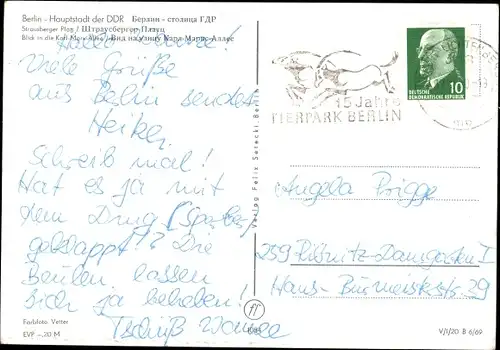 Berlin - Hauptstadt der DDR Берлин - столица ГДР
Strausberger Platz / Штраусбергер Платц
Blick in die Karl-Marx-Allee / Вид на улицу Карл-Маркс-Аллее
Viele Grüße
aus Berlin sendet
Heike!
Schreib mal!
Hat es ja mit
dem Ding
geklappt? Die
Beulen lassen
sich ja beheben!
Tschüß
Farbfoto: Vetter
EVP -,20 M
Verlag Felix Setecki, Berlin
15 Jahre
TIERPARK BERLIN
DEUTSCHE
DEMOKRATISCHE REPUBLIK
10
Angela Prigge
259 Ribnitz-Damgarten I
Hans-Burmeister-str. 29
V/1/20 B 6/69